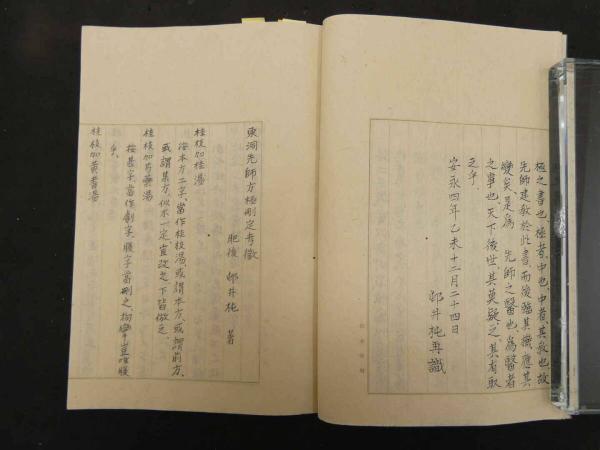 極之書也、極者、中也、中者、其敎也、故
先師建敎於此書、而後臨其機、應其
變矣、是爲　先師之醫也、爲醫者
之事也、天下後世、其莫疑之、其有取
之乎、
安永四年乙未十二月二十四日
邨井杶再識
東洞先師方極刪定考徵
肥後　邨井杶　著
桂枝加桂湯
按本方二字、當作桂枝湯、或謂本方、或謂前方、
或謂某方、似不一定、宜改之、下皆倣之、
桂枝加芍藥湯
按甚字、當作劇字、腹字當刪之、拘攣豈唯腹
乎、
桂枝加黃耆湯